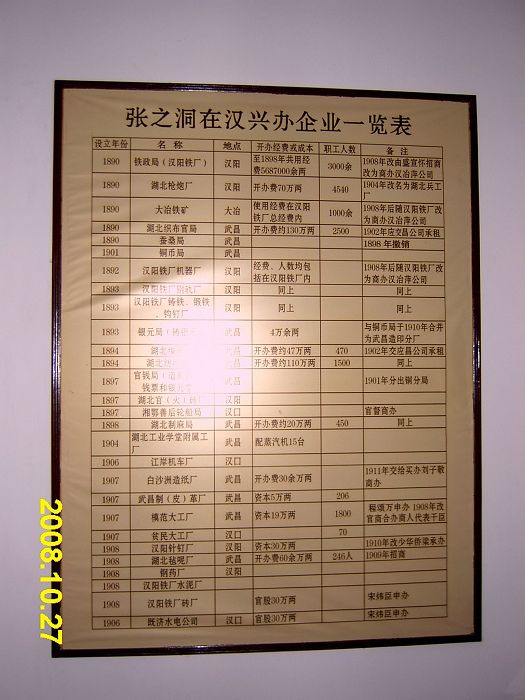 张之洞在汉兴办企业一览表
设立年份 名称 地点 开办经费或成本 职工人数 备注
1890 铁政局（汉阳铁厂） 汉阳 至1898年共用经费5687000余两 3000余 1908年改由盛宣怀招商改为商办汉冶萍公司
1890 湖北枪炮厂 汉阳 开办费70万两 4540 1904年改名为湖北兵工厂
1890 大冶铁矿 大冶 使用经费在汉阳铁厂总经费内 1000余 1908年后随汉阳铁厂改为商办汉冶萍公司
1890 湖北织布官局 武昌 开办经费约130万两 2500 1902年应交昌公司承租
1890 蚕桑局 武昌 1898年撤销
1901 铜币局 武昌
1892 汉阳铁厂机器厂 汉阳 经费、人数均包括在汉阳铁厂内 1908年后随汉阳铁厂改为商办汉冶萍公司
1893 汉阳铁厂钢轨厂 汉阳 同上 同上
1893 汉阳铁厂铸铁、锻铁、钩钉厂 汉阳 同上 同上
1893 银元局 武昌 4万余两 与铜币局于1910年合并为武昌造印分厂
1894 湖北 武昌 开办费约47万两 470 1902年交应昌公司承租
1894 湖北 武昌 开办费约110万两 1500 同上
1897 官钱局 钱票和银元 武昌 1901年分出铜分局
1897 湖北官（火）砖厂 汉阳
1897 湘鄂善后轮船局 汉口 官督商办
1898 湖北制麻局 武昌 开办费约20万两 450 同上
1904 湖北工业学堂附属工厂 武昌 配蒸汽机15台
1906 江岸机车厂 汉口
1907 白沙洲造纸厂 武昌 开办费30余万两 1911年交给买办刘子敬商办
1907 武昌制（皮）革厂 武昌 资本5万两 206
1907 模范大工厂 武昌 资本19万两 1800 程颂万申办 1908年改官商合办商人代表干臣
1907 贫民大工厂 汉口 70
1908 汉阳针钉厂 汉阳 资本30万两 1910年改少华侨梁承办
1908 湖北毡呢厂 武昌 开办费60余万两 246人 1909年招商
1908 钢药厂 汉阳
1908 汉阳铁厂水泥厂
1908 汉阳铁厂砖厂 官股30万两 宋炜臣申办
1906 既济水电公司 汉口 官股30万两 宋炜臣申办
2008.10.27